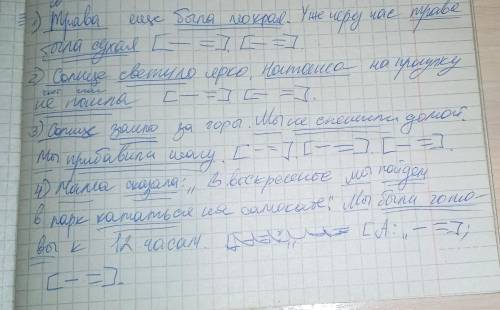 1) Трава еще была мокрая. Уже через час трава
была сухая [— =]. [— =].
2) Солнце светило ярко. Наташа на прогулку
не пошла [— =] [— =].
3) Солнце зашло за горы. Мы не спешили домой.
Мы прибавили шагу. [— =]. [— =]. [— =].
4) Мама сказала: „В воскресенье мы пойдем
в парк кататься на самокате". Мы были гото-
вы к 12 часам. [А: „— =];
[— =].